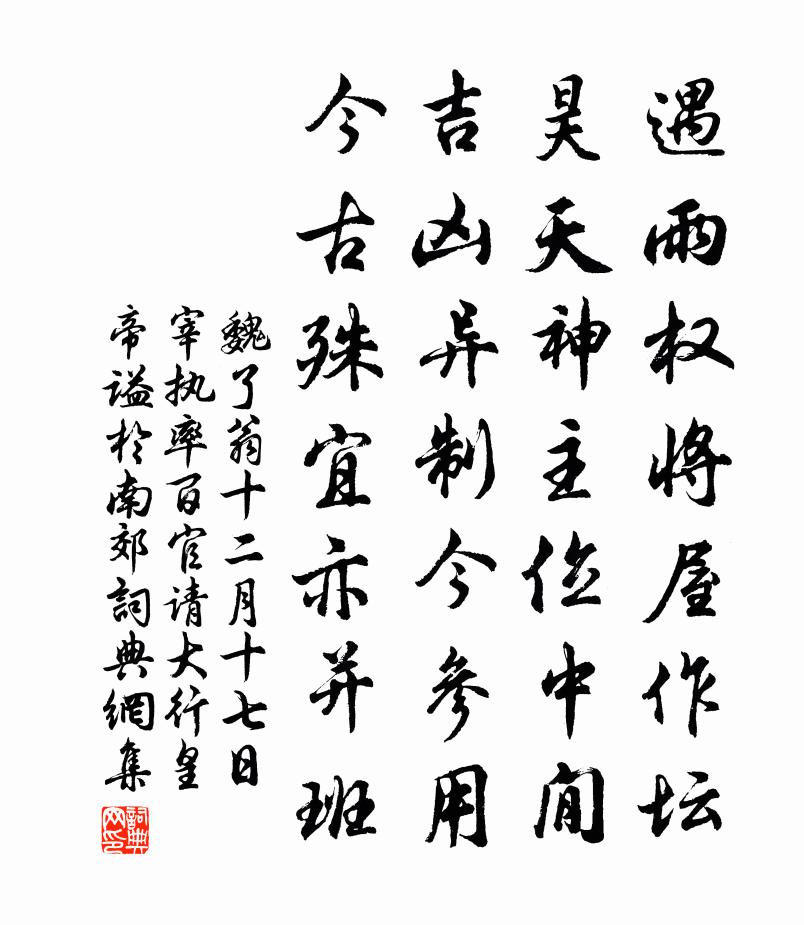 遇雨权将屋作坛
昊天神主位中间
吉凶异制今參用
今古殊宜亦并班
魏了翁十二月十七日
宰执率百官请大行皇
帝谥於南郊詞典網集
詞典网印